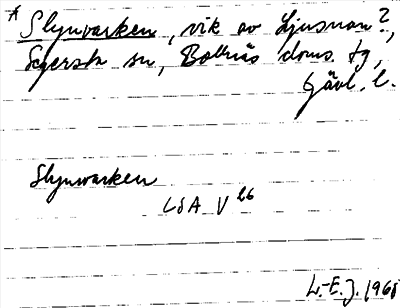 * Slynvarken, vik av Ljusnan?,
Segersta sn, Bollnäs doms. tg,
Gävl. l.
Slynvarken
LSA V 26
L.-E. J. 1968